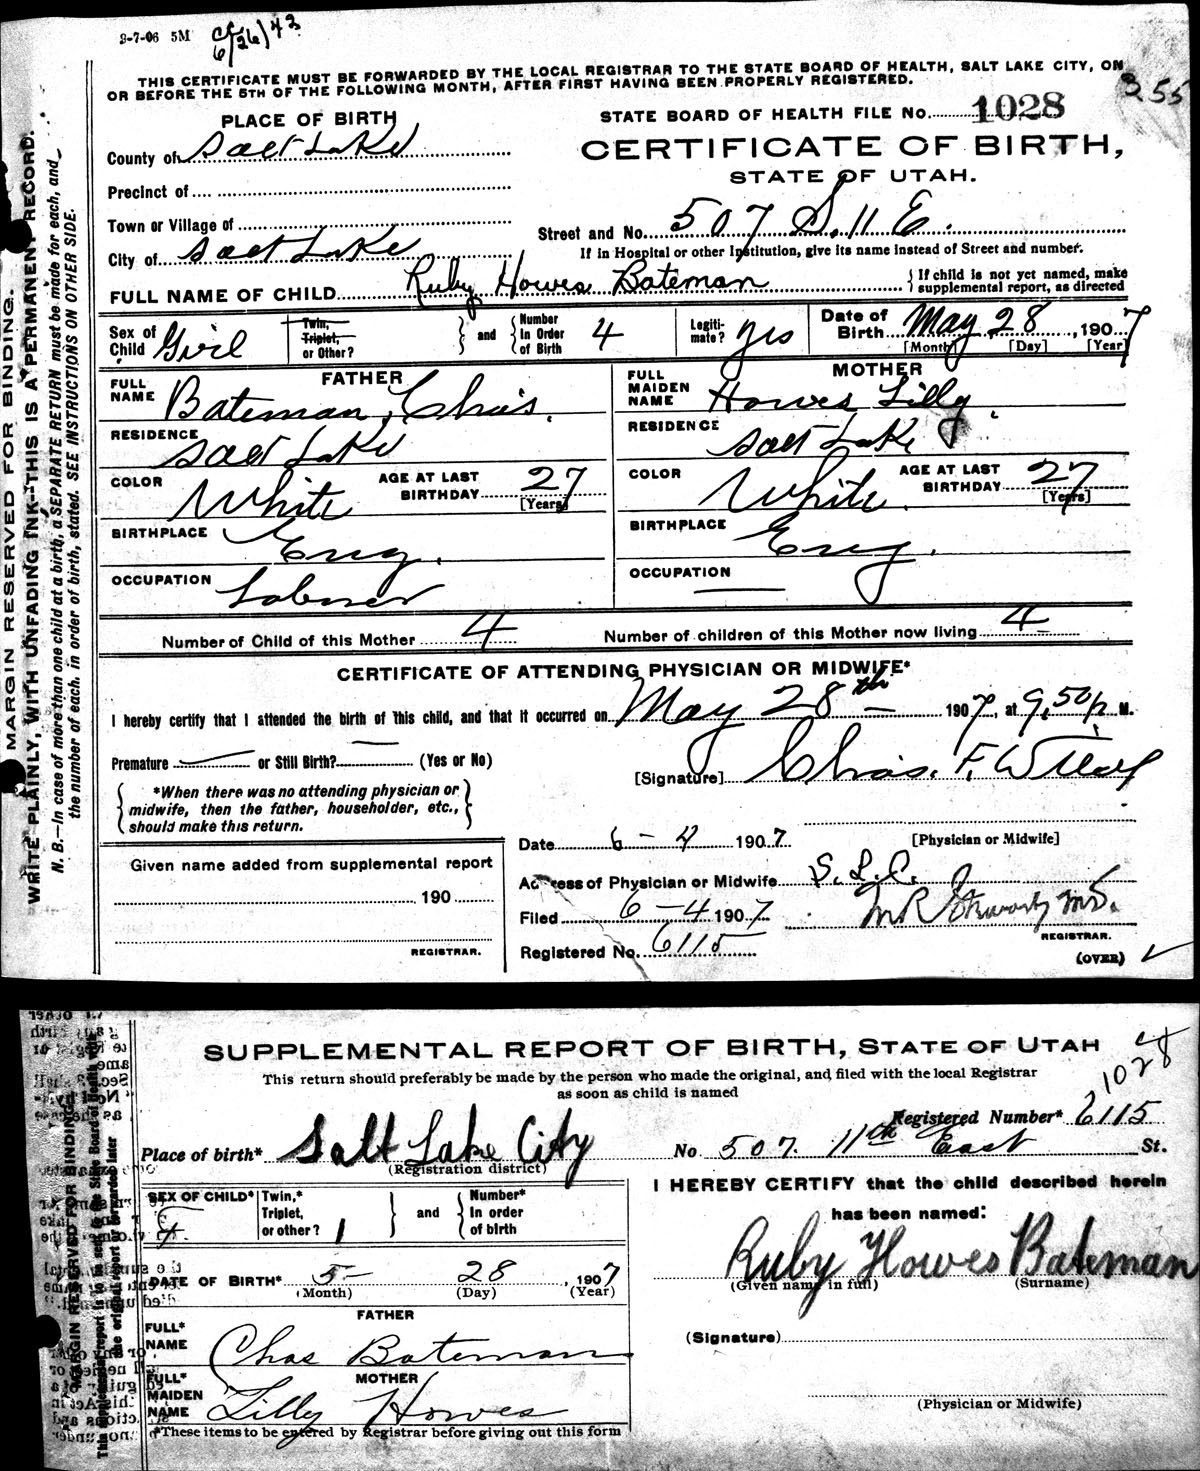 3-7-06 5M
6/26/43
THIS CERTIFICATE MUST BE FORWARDED BY THE LOCAL REGISTRAR TO THE STATE BOARD OF HEALTH, SALT LAKE CITY, ON
OR BEFORE THE 5TH OF THE FOLLOWING MONTH, AFTER FIRST HAVING BEEN PROPERLY REGISTERED.
355
MARGIN RESERVED FOR BINDING.
WRITE PLAINLY, WITH UNFADING INK—THIS IS A PERMANENT RECORD.
N. B.—In case of more than one child at a birth, a SEPARATE RETURN must be made for each, and
the number of each, in order of birth, stated. SEE INSTRUCTIONS ON OTHER SIDE.
PLACE OF BIRTH
STATE BOARD OF HEALTH FILE No. 1028
County of Salt Lake
CERTIFICATE OF BIRTH,
STATE OF UTAH.
Precinct of
Town or Village of
Street and No. 507 S. 11 E.
City of Salt Lake
If in Hospital or other Institution, give its name instead of Street and number.
FULL NAME OF CHILD Ruby Howes Bateman
If child is not yet named, make
supplemental report, as directed
Sex of Child Girl
Twin, Triplet, or Other?
and
Number In Order of Birth 4
Legitimate? yes
Date of Birth May 28, 1907
[Month] [Day] [Year]
FATHER
MOTHER
FULL NAME Bateman, Chas.
FULL MAIDEN NAME Howes Lilly
RESIDENCE Salt Lake
RESIDENCE Salt Lake
COLOR White
AGE AT LAST BIRTHDAY 27 [Years]
COLOR White
AGE AT LAST BIRTHDAY 27 [Years]
BIRTHPLACE Eng.
BIRTHPLACE Eng.
OCCUPATION Laborer
OCCUPATION
Number of Child of this Mother 4
Number of children of this Mother now living 4
CERTIFICATE OF ATTENDING PHYSICIAN OR MIDWIFE*
I hereby certify that I attended the birth of this child, and that it occurred on May 28th 1907, at 9,50 p M.
Premature or Still Birth? (Yes or No)
[Signature] Chas. F.
*When there was no attending physician or
midwife, then the father, householder, etc.,
should make this return.
Date 6-4 1907
[Physician or Midwife]
Given name added from supplemental report
190
REGISTRAR.
Address of Physician or Midwife S. L. C.
Filed 6-4 1907
REGISTRAR.
Registered No. 6115
(OVER)
SUPPLEMENTAL REPORT OF BIRTH, STATE OF UTAH
This return should preferably be made by the person who made the original, and filed with the local Registrar
as soon as child is named
1028
Registered Number* 6115
Place of birth* Salt Lake City
(Registration district)
No 507. 11th East St.
MARGIN RESERVED FOR BINDING
This supplemental report is to be sent to the State Board of Health with
the original report or forwarded later
SEX OF CHILD* F
Twin,* Triplet, or other? 1
and
Number* In order of birth
I HEREBY CERTIFY that the child described herein
has been named:
Ruby Howes Bateman
(Given name in full) (Surname)
DATE OF BIRTH* 5- 28, 1907
(Month) (Day) (Year)
FATHER
FULL* NAME Chas Bateman
(Signature)
MOTHER
FULL* MAIDEN NAME Lilly Howes
(Physician or Midwife)
*These items to be entered by Registrar before giving out this form